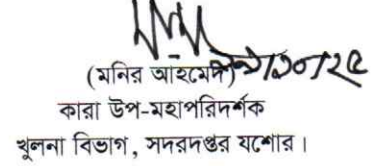 (মনির আহমেদ)
কারা উপ-মহাপরিদর্শক
খুলনা বিভাগ, সদরদপ্তর যশোর।